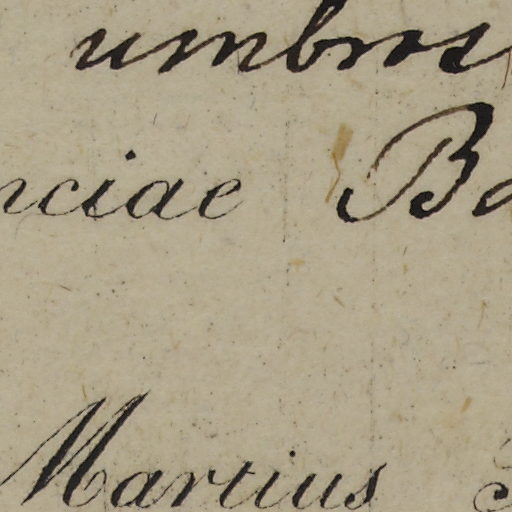 umbros
nciae Ba
Martius